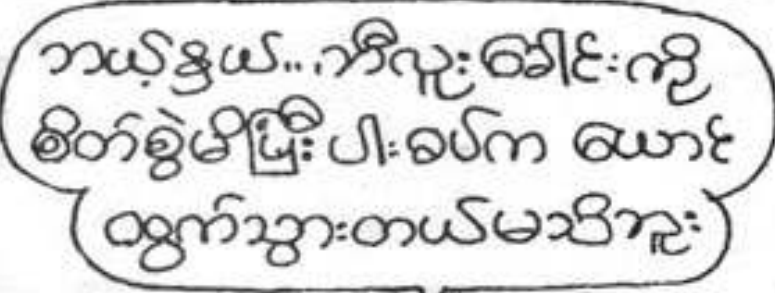 ဘယ့်နှယ်...ဘီလူးခေါင်းကို
စိတ်စွဲမိပြီး ပါးစပ်က ယောင်
ထွက်သွားတယ်မသိဘူး